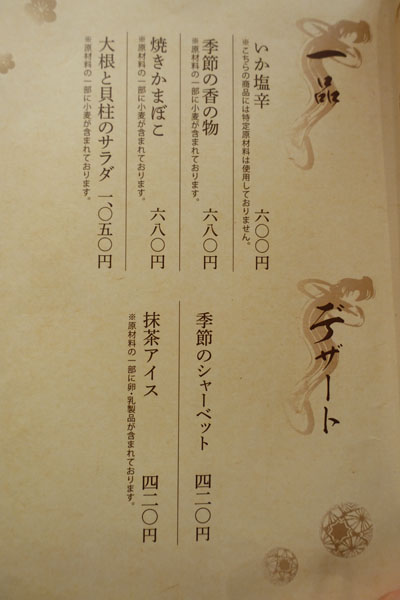 一品
いか塩辛 六〇〇円
※こちらの商品には特定原材料は使用しておりません。
季節の香の物 六八〇円
※原材料の一部に小麦が含まれております。
焼きかまぼこ 六八〇円
※原材料の一部に小麦が含まれております。
大根と貝柱のサラダ 一、〇五〇円
※原材料の一部に小麦が含まれております。
デザート
季節のシャーベット 四二〇円
抹茶アイス 四二〇円
※原材料の一部に卵・乳製品が含まれております。